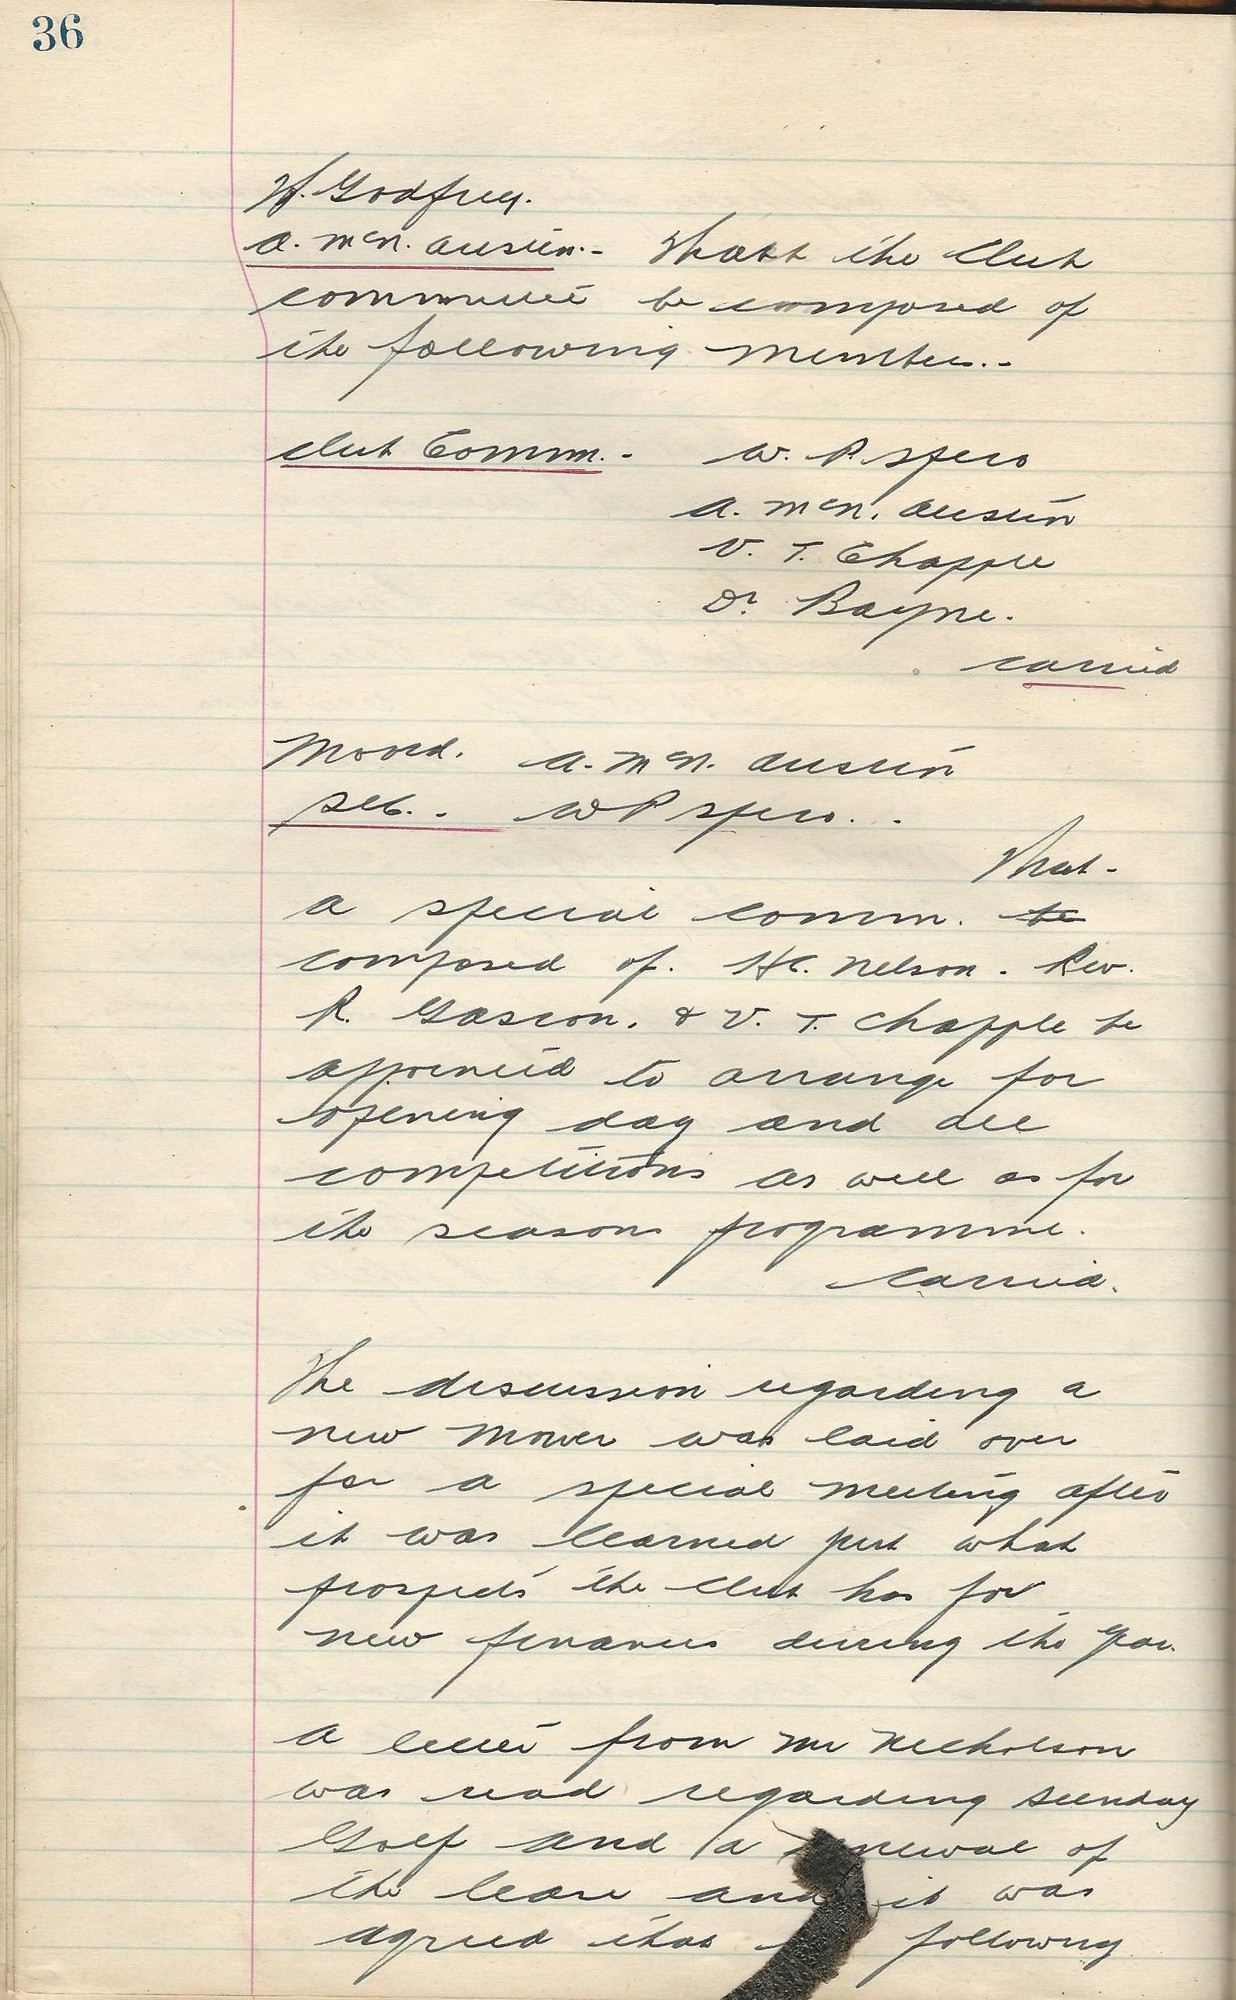 36
H. Godfrey.
A. McN. Austin.- That the Club
committee be composed of
the following members.-
Club Comm.- W. P. Spero
A. McN. Austin
V. T. Chapple
Dr. Bayne.
carried
Moved. A. McN. Austin
Sec.- W P Spero.-
That-
a special comm. be
composed of. H.C. Nelson. Rev.
R. Gascon. & V. T. Chapple be
appointed to arrange for
opening day and all
competitions as well as for
the seasons programme.
Carried.
The discussion regarding a
new mower was laid over
for a special meeting after
it was learned just what
prospects the Club has for
new finances during the year.
A letter from Mr Nicholson
was read regarding Sunday
Golf and a renewal of
the lease and it was
agreed that following